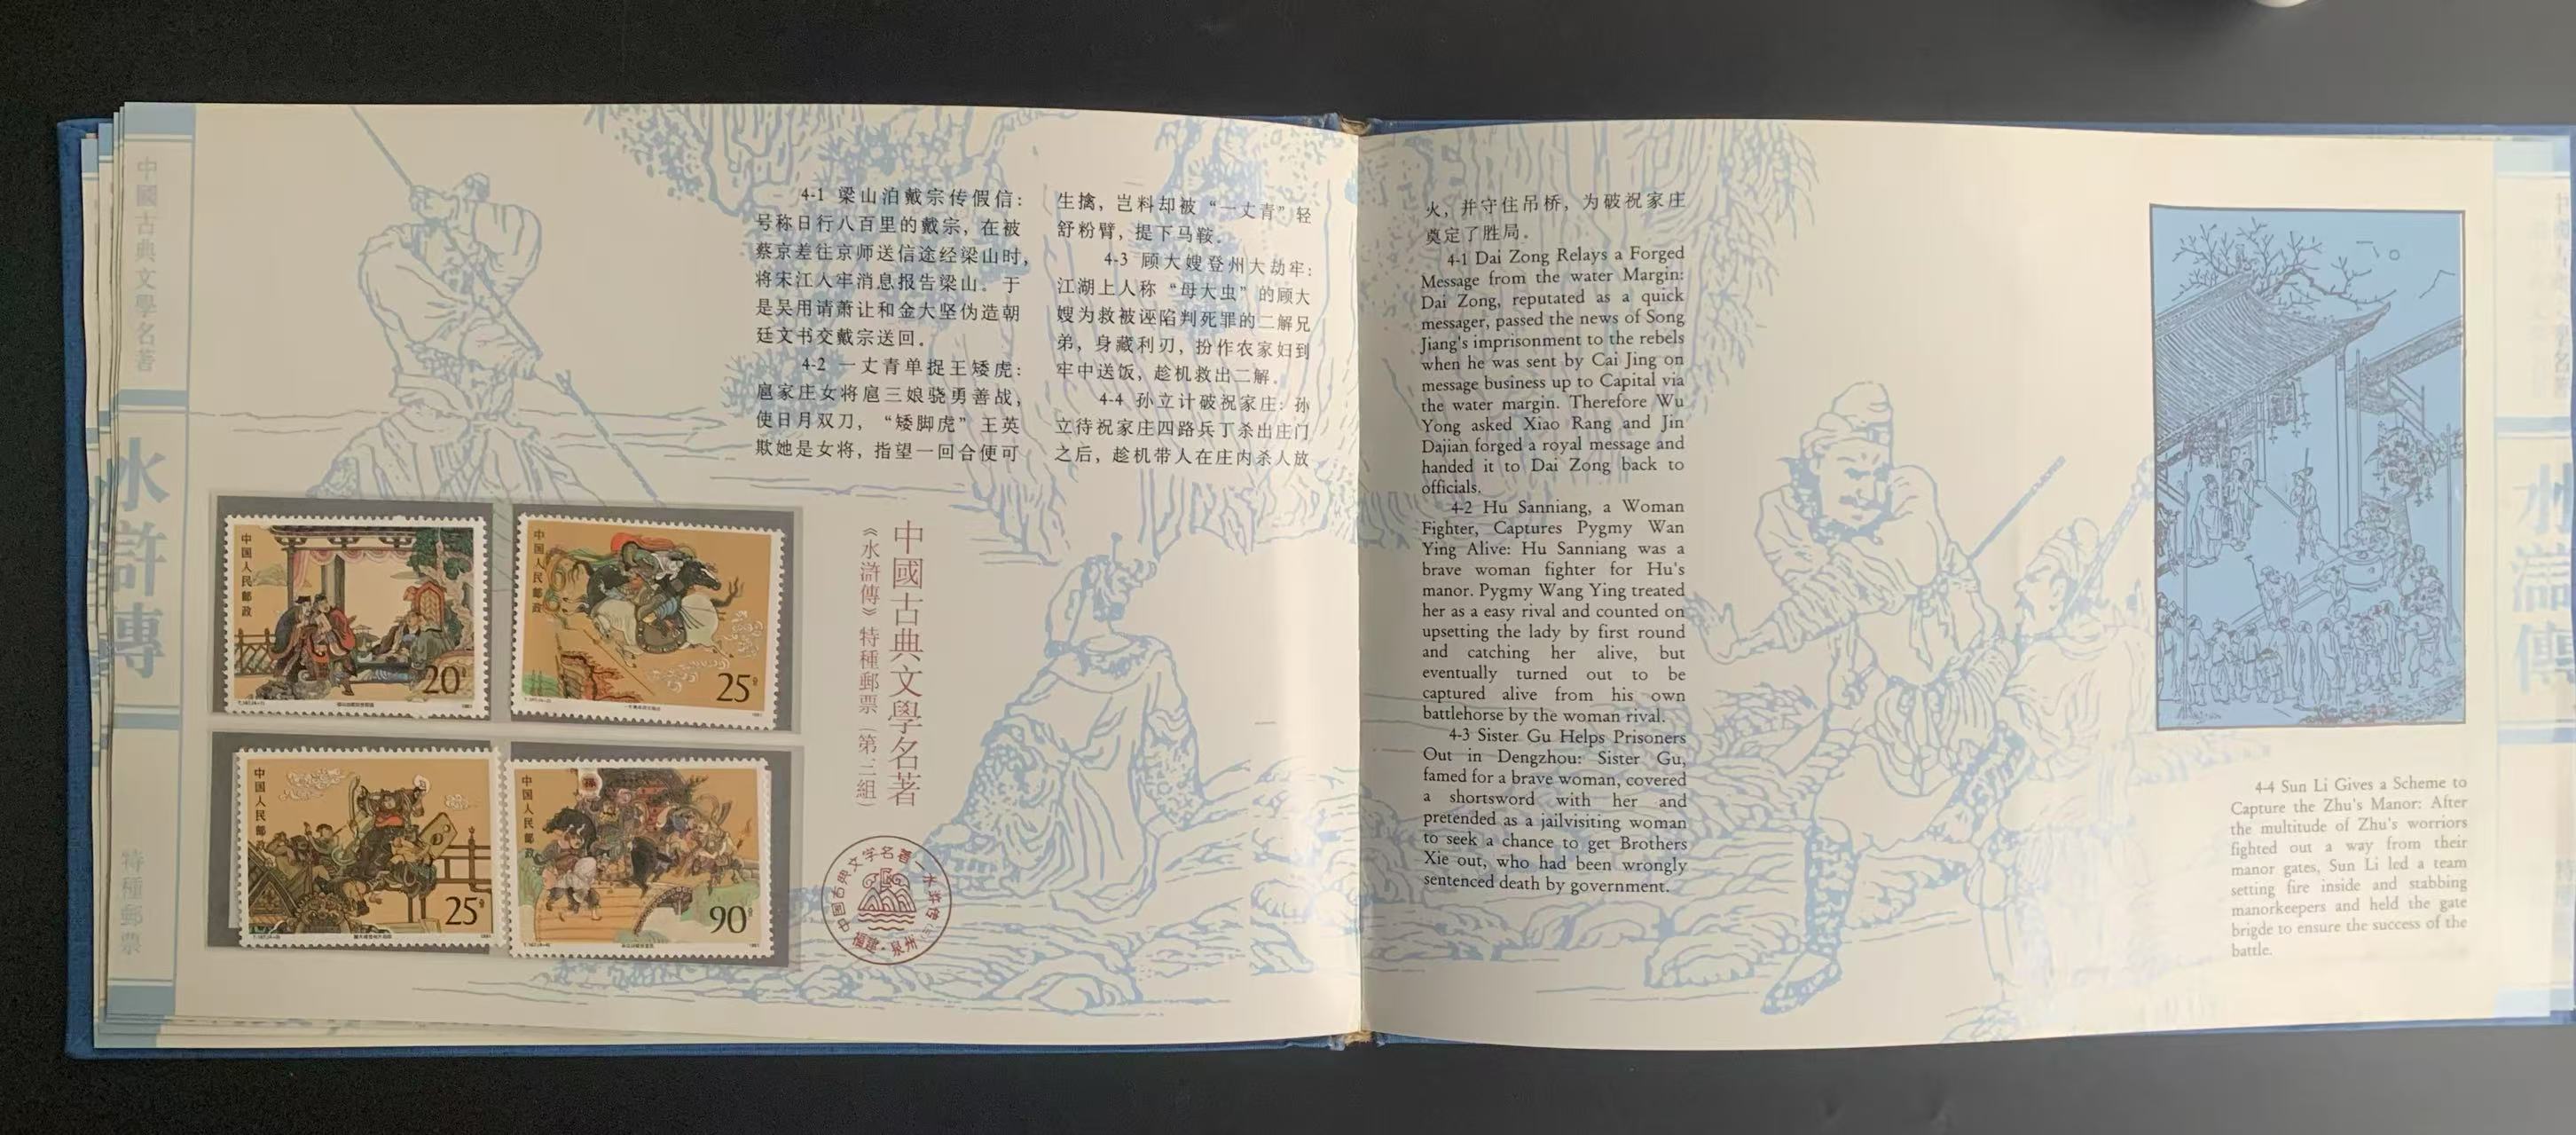 中國古典文學名著
水滸傳
特種郵票
4-1 梁山泊戴宗传假信：
号称日行八百里的戴宗，在被
蔡京差往京师送信途经梁山时，
将宋江人牢消息报告梁山。于
是吴用请萧让和金大坚伪造朝
廷文书交戴宗送回。
4-2 一丈青单捉王矮虎：
扈家庄女将扈三娘骁勇善战，
使日月双刀，“矮脚虎”王英
欺她是女将，指望一回合便可
生擒，岂料却被“一丈青”轻
舒粉臂，提下马鞍。
4-3 顾大嫂登州大劫牢：
江湖上人称“母大虫”的顾大
嫂为救被诬陷判死罪的二解兄
弟，身藏利刃，扮作农家妇到
牢中送饭，趁机救出二解。
4-4 孙立计破祝家庄：孙
立待祝家庄四路兵丁杀出庄门
之后，趁机带人在庄内杀人放
中国人民邮政
20分
1991
中国人民邮政
25分
1991
中国人民邮政
25分
1991
中国人民邮政
90分
1991
中國古典文學名著
《水滸傳》特種郵票（第三組）
中国古典文学名著 水浒传
福建·泉州
火，并守住吊桥，为破祝家庄
奠定了胜局。
4-1 Dai Zong Relays a Forged
Message from the water Margin:
Dai Zong, reputated as a quick
messager, passed the news of Song
Jiang's imprisonment to the rebels
when he was sent by Cai Jing on
message business up to Capital via
the water margin. Therefore Wu
Yong asked Xiao Rang and Jin
Dajian forged a royal message and
handed it to Dai Zong back to
officials.
4-2 Hu Sanniang, a Woman
Fighter, Captures Pygmy Wan
Ying Alive: Hu Sanniang was a
brave woman fighter for Hu's
manor. Pygmy Wang Ying treated
her as a easy rival and counted on
upsetting the lady by first round
and catching her alive, but
eventually turned out to be
captured alive from his own
battlehorse by the woman rival.
4-3 Sister Gu Helps Prisoners
Out in Dengzhou: Sister Gu,
famed for a brave woman, covered
a shortsword with her and
pretended as a jailvisiting woman
to seek a chance to get Brothers
Xie out, who had been wrongly
sentenced death by government.
4-4 Sun Li Gives a Scheme to
Capture the Zhu's Manor: After
the multitude of Zhu's worriors
fighted out a way from their
manor gates, Sun Li led a team
setting fire inside and stabbing
manorkeepers and held the gate
brigde to ensure the success of the
battle.
水滸傳